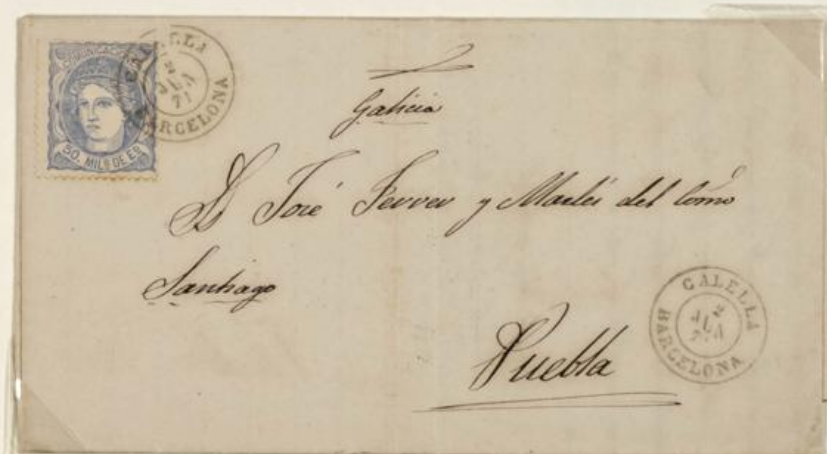 COMUNICACIONES
50. MILS DE E.
CALELLA
2
JUL
71
BARCELONA
Galicia
D José Ferrer y del Como
Santiago
Puebla
CALELLA
2
JUL
71
BARCELONA